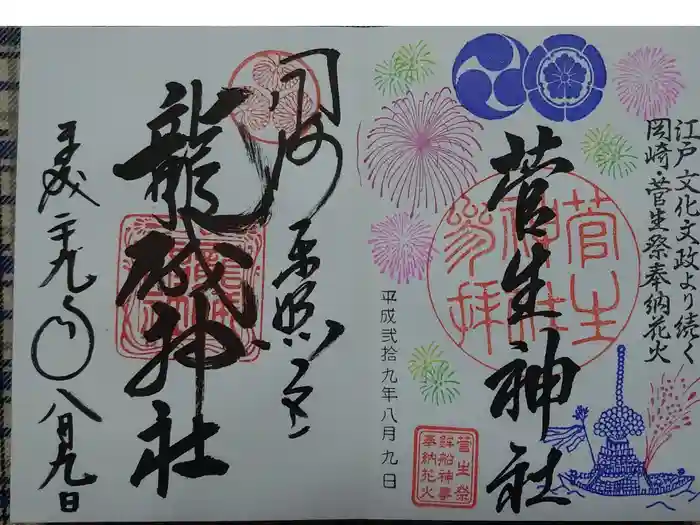 江戸文化文政より続く
岡崎・菅生祭奉納花火
菅生神社
菅生神社
参拝
平成弐拾九年八月九日
菅生祭
鉾船神事
奉納花火
東照宮
龍城神社
平成二十九年
八月九日